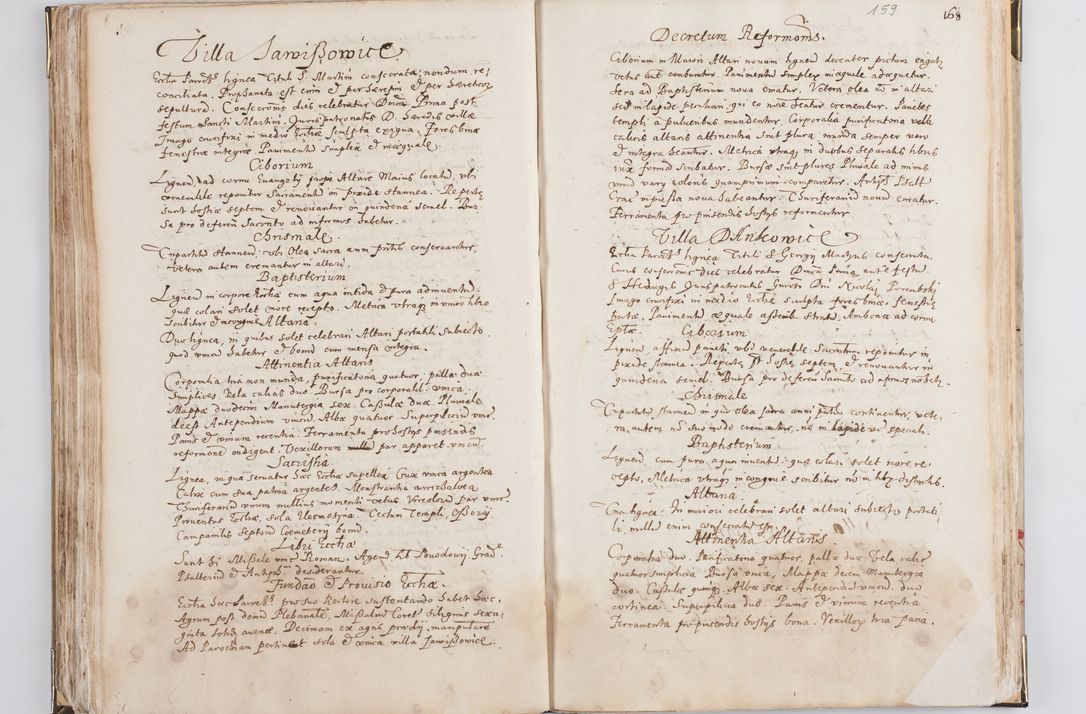 Villa Jawißowice
Ecclia Paroch. lignea Tituli S. Martini consecrata, nondum re
conciliata. Prophanata est enim et per Haeresim et per Haereticor.
sepultura. Consecronis dies celebratur Dnica Prima post
festum Sancti Martini. Juris patronatus D. Haeredis villae
Imago crucifixi in medio Ecclae sculpta exigua. Fores binae
fenestrae integrae Pavimentu simplex et inaequale.
Ciborium
Ligneu, ad cornu Euangelij prope Altare Maius locatu, ubi
venerabile reponitur Sacramentu in pixide stannea.
sunt hostiae septem et renovantur in quindena semel. Bur-
sa pro deferen Sacrnto ad infirmos habetur.
Chrismale.
Tripartitu stanneu, ubi Olea sacra anni pntis conservantur,
vetera autem cremantur in altari.
Baptisterium
Ligneu in corpore Ecclae cum aqua nitida et pura adinventu.
quae colari solet more recepto. Metrica utraq in unico libro
scribitur et incongrue Altaria.
Duo lignea, in quibus solet celebrari Altari portatili subiecto
quod unicu habetur et bonu cum mensa integra.
Attinentia Altaris
Corporalia tria non munda, purificatoria quatuor, pallae duae
simplices. Vela calicis duo. Bursa pro corporali unica.
Mappae duodecim Manutergia sex. Casulae duae Pluviale
deest Antependium unicu Albae quatuor. Superpliciu unu.
Panis et vinum recentia. Ferramenta pro hostys pinsendis
reformone indigent. Vexillorum par apparet unicu.
Sacristia
Lignea, in qua servatur haec Ecclae supellex Crux unica argentea
Calix cum sua patina argenteus. Monstrantia aurichalcea
Thuriferariu unum nullius momenti vetus. Urceolorum par unu.
Proventus Ecclae, sola Eleemosyna. Tectum Templi, Ossorij,
Campanilis Septoru Coemeterij bonu.
Libri Ecclae
Sunt hi Missale unu Roman. Agend. Et Powodowij. Grad.
Psalterium et Antiph. desiderantur.
Fundao et Provisio Ecclae.
Ecclia haec Paroch. pro suo Rectore sustentando habet haec,
Agrum post domu Plebanale, Missaliu Coret siliginis sexa-
ginta totidem avenae. Decimam ex agris praedij manipulare
Ad Parochiam pertinet sola et unica villa Jawißowice.
159
168
Decretum Reformonis.
Ciborium in Maiori Altari novum ligneu decenter pictum erigat.
vetus aut comburatur. Pavimentu simplex inaequale adaequetur.
Sera ad Baptisterium nova ematur. Vetera olea no in altari
sed in lapide peculiari, qui eo noie fiatur crementur. Parietes
templi a pulveribus mundentur. Corporalia purificatoria vela
calicis altaris attinentia sint plura munda semper vero
et integra habeantur. Metrica utraq in duobus separatis libris
iux formâ scribatur. Bursae sint plures Pluviale ad minus
unu vary coloris quamprimum comparetur. Antiph. Psalt
Grad. impressa nova habeantur. Thuriferariu novu ematur.
Ferramenta pro pinsendis hostijs reformentur
Villa Dankowice
Ecclia Paroch. lignea Tituli S. Georgij Martyris consecrata.
Cuius consecronis dies celebratur Dnica Prima ante festu
S. Hedwigis. Juris patronatus Gnrosi Dni Nicolai Porembski
Imago crucifixi in medio Ecclae sculpta fores binae, fenestrae
fractae. Pavimentu aequale asserib. stratu, Ambona ad cornu
Eplae.
Ciborium
Ligneu affixu parieti ubi venerabile Sacramentum reponitur in
pixide stannea. Repertae st hostiae septem, et renovantur in
quindena semel. Bursa pro deferen Sacrnto ad infirmos habetur.
Chrismale
Tripartitu stanneu in quo olea sacra anni pntis continentur, vete-
ra autem no suo modo cremantur, no in lapide vid speciali.
Baptisterium
Ligneu cum pura aqua inventu quae colari solet more re
cepto, Metrica utraq incongrue scribitur no in libr. distinctis.
Altaria
Tria lignea: In maiori celebrari solet altari subiecto portati
li, nullu enim consecratu est.
Attinentia Altaris
Corporalia duo. Purificatoria quatuor, pallae duae Vela calic.
quatuor simplicia Bursa unica, Mappae decem Manutergia
duo. Casulae quinq. Albae sex. Antependiu unicu. duo
cortinea. Superpilicia duo. Panis et vinum recentia
Ferramenta pro pinsendis hostys bona. Vexillor. tria paria.